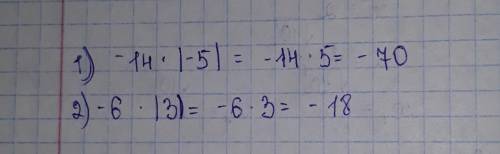 1) -14 · |-5| = -14 · 5 = -70
2) -6 · |3| = -6 · 3 = -18